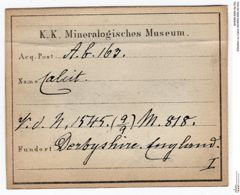 K. K. Mineralogisches Museum.
Acq. Post A.b. 163.
Name Calcit.
V. d. N. 1545. (9/9) M. 818.
Fundort Derbyshire. England.
I